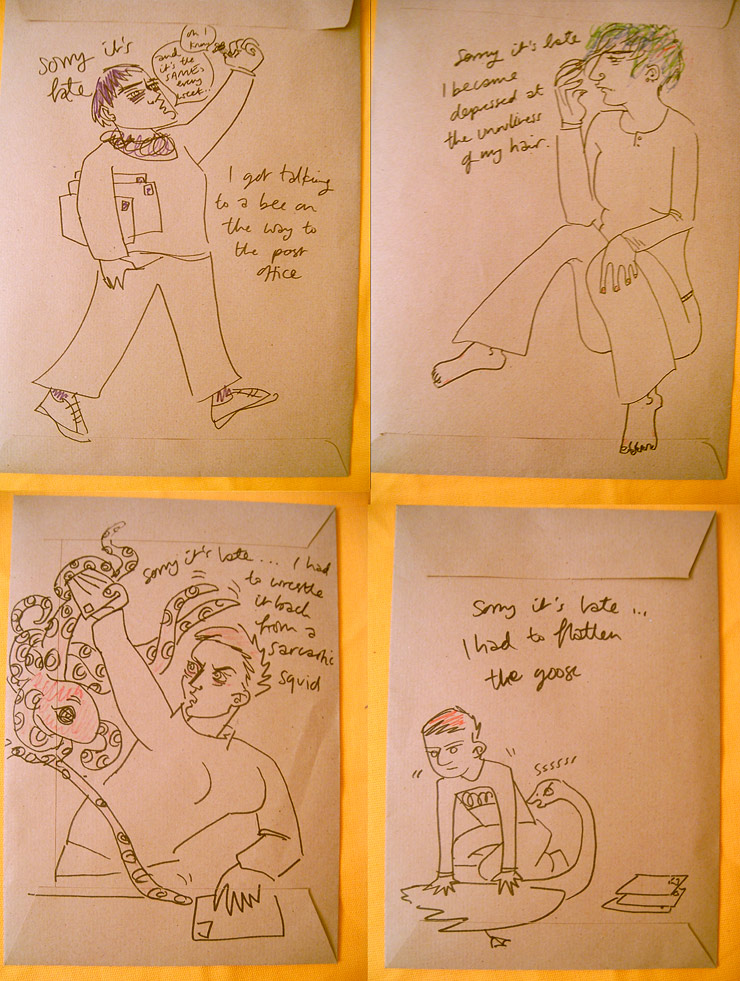 sorry it's
late
oh I
know
and
it's the
SAME
every
week...
I got talking
to a bee on
the way to
the post
office
Sorry it's late
I became
depressed at
the unruliness
of my hair.
sorry it's late... I had
to wrestle
it back
from a
sarcastic
squid
Sorry it's late...
I had to flatten
the goose
ssssss